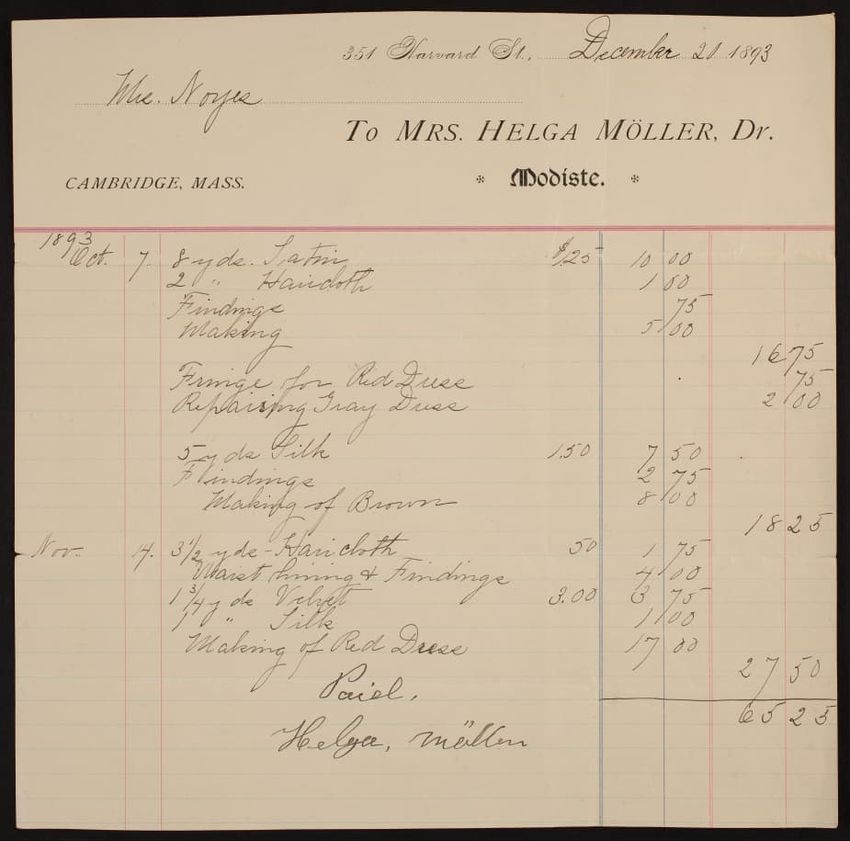 351 Harvard St., December 20 1893
Mrs. Noyes
To MRS. HELGA MÖLLER, Dr.
CAMBRIDGE, MASS. * Modiste. *
1893
Oct. 7. 8 yds. Satin $1.25 10 00
2 " Haircloth 1 00
Findings 75
Making 5 00
16 75
Fringe for Red Dress 75
Repairing Gray Dress 2 00
5 yds Silk 1.50 7 50
Findings 2 75
Making of Brown 8 00
18 25
Nov. 14. 3 1/2 yds - Haircloth 50 1 75
Waist lining & Findings 4 00
1 3/4 yds Velvet 3.00 3 75
1 " Silk 1 00
Making of Red Dress 17 00
27 50
Paid. 65 25
Helga, Möller